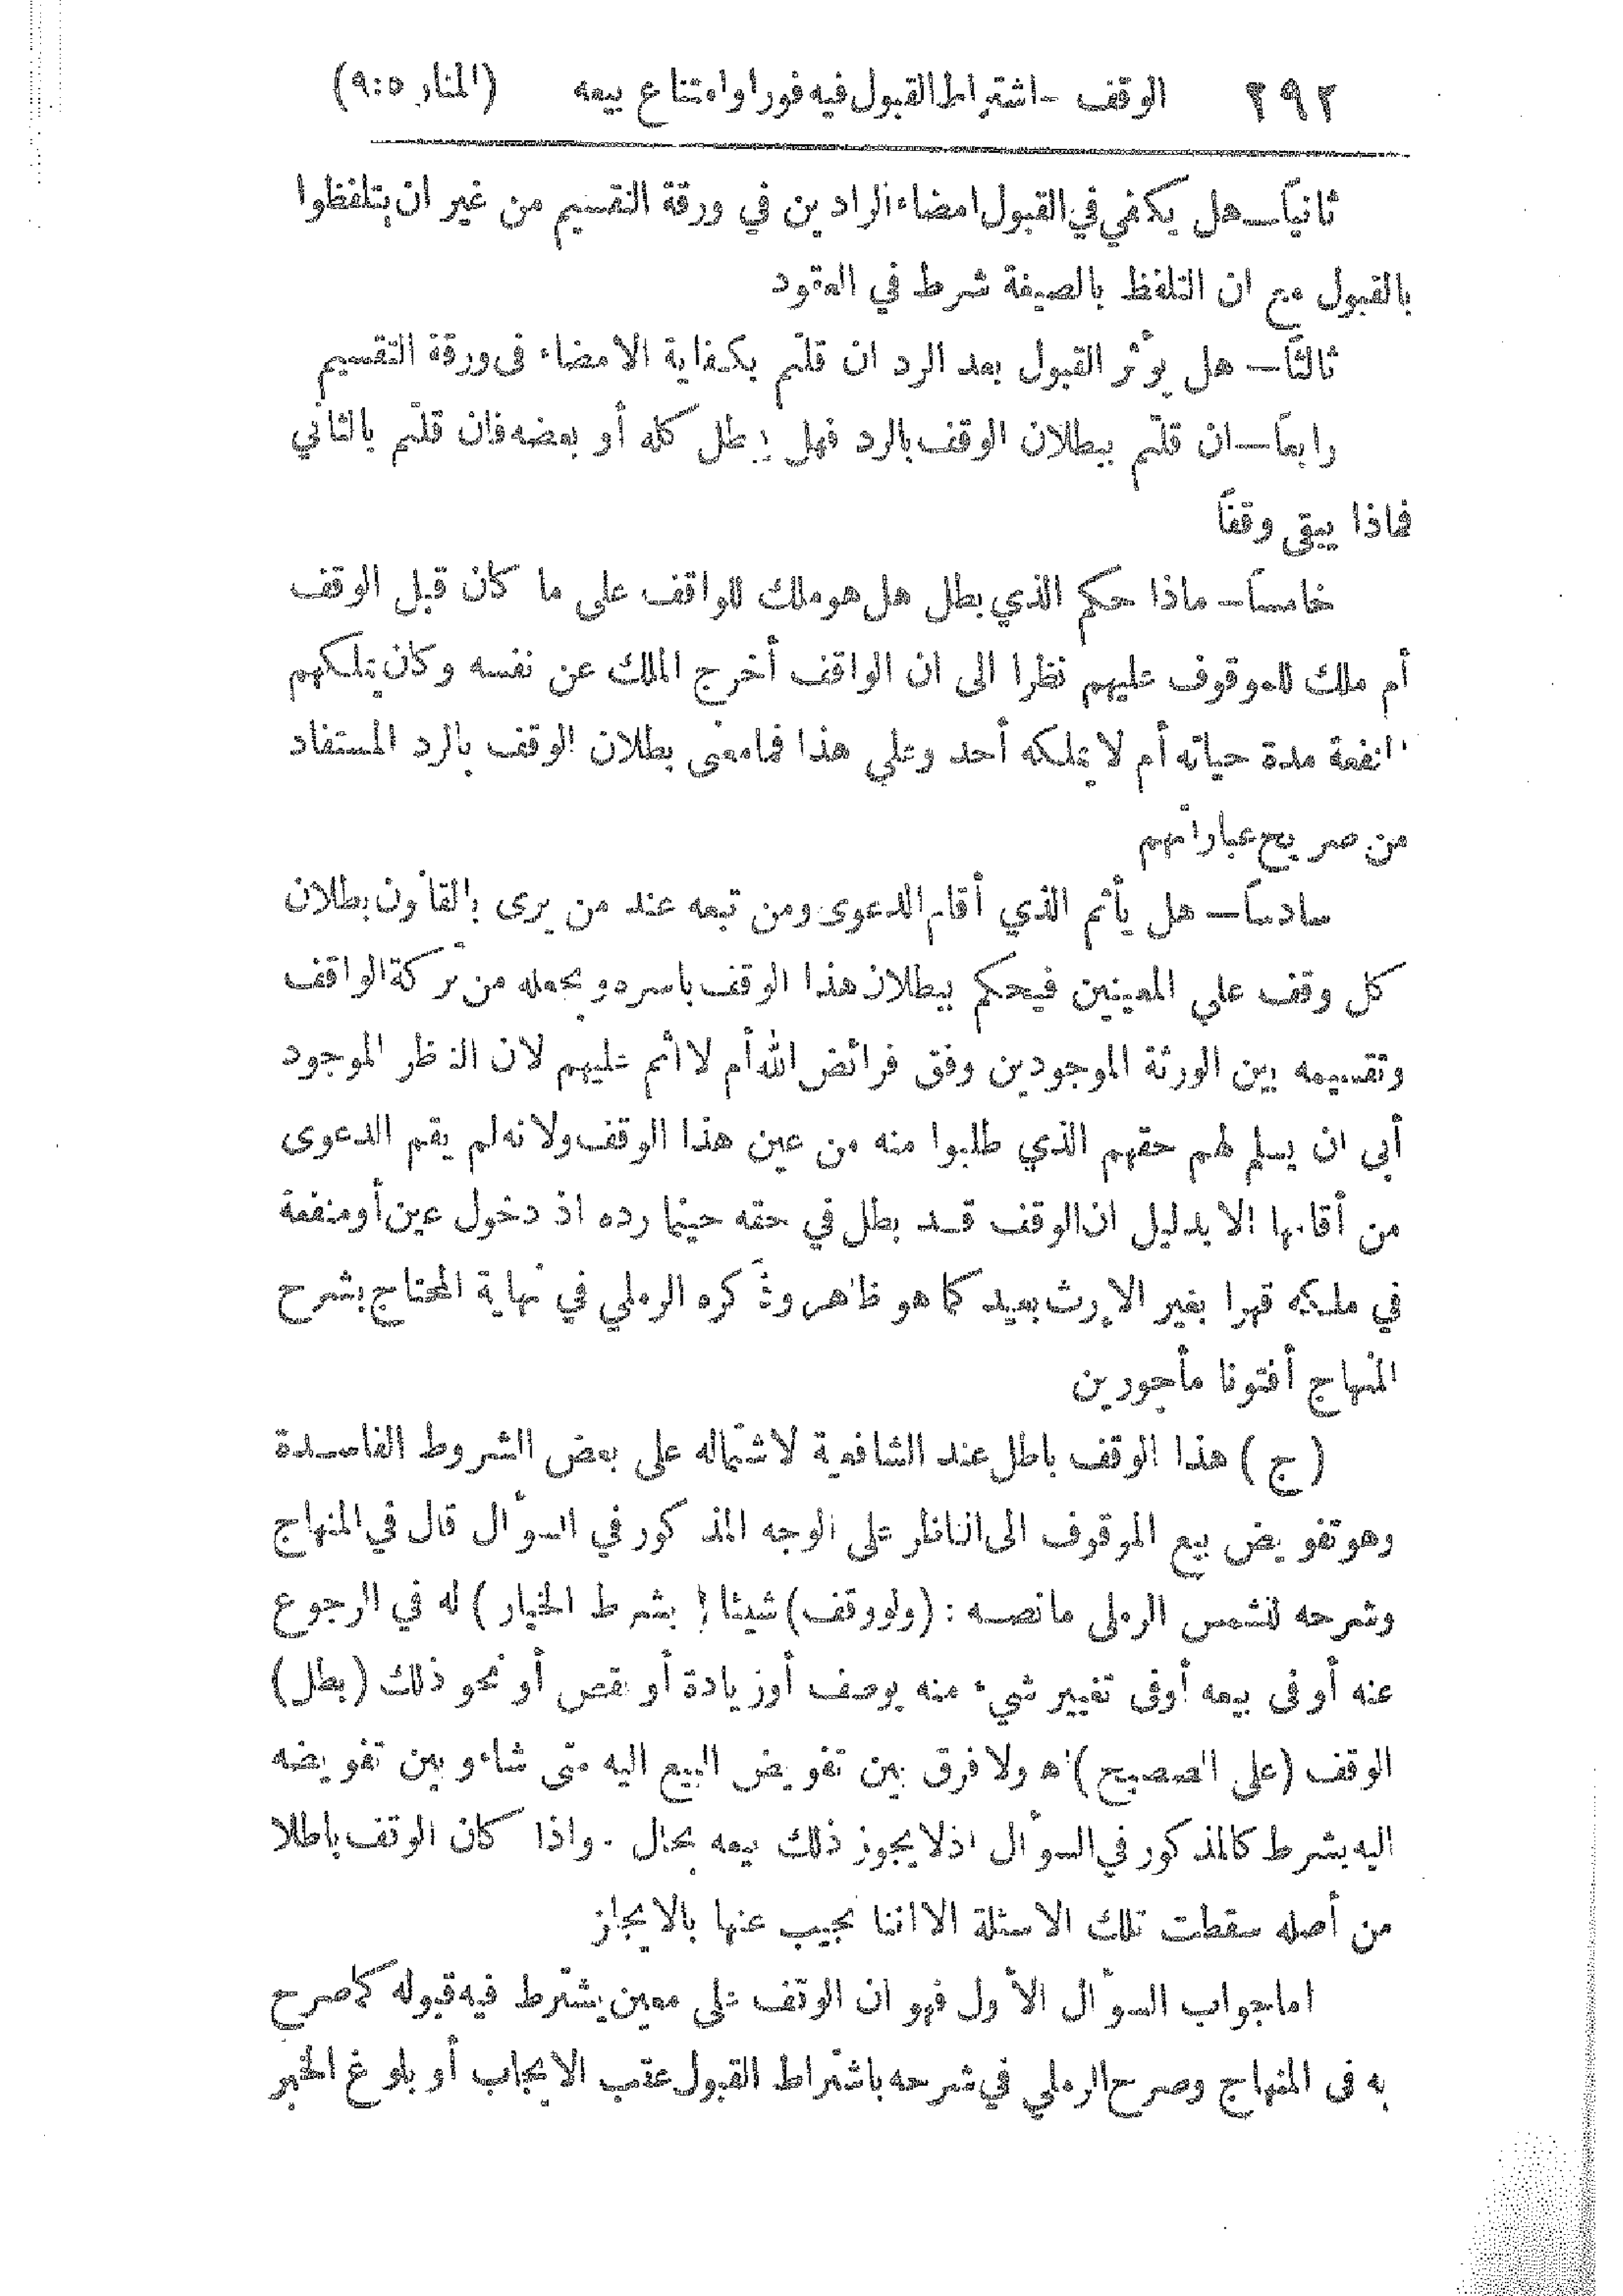 ٢٩٢ الوقف - اشتراط القبول فيه فورا وامتناع بيعه (المنار ٥:٩)
ثانياً — هل يكفي في القبول امضاء الرادين في ورقة التقسيم من غير ان يتلفظوا
بالقبول مع ان التلفظ بالصيغة شرط في العقود
ثالثاً — هل يؤثر القبول بعد الرد ان قلتم بكفاية الامضاء فى ورقة التقسيم
رابعاً — ان قلتم ببطلان الوقف بالرد فهل يبطل كله أو بعضه فان قلتم بالثاني
فماذا يبقى وقفاً
خامساً — ماذا حكم الذي بطل هل هو ملك للواقف على ما كان قبل الوقف
أم ملك للموقوف عليهم نظرا الى ان الواقف أخرج الملك عن نفسه وكان يملكهم
المنفعة مدة حياته أم لا يملكه أحد وعلى هذا فما معنى بطلان الوقف بالرد المستفاد
من صريح عباراتهم
سادساً — هل يأثم الذي أقام الدعوى ومن تبعه عند من يرى بالقانون بطلان
كل وقف على المعينين فيحكم ببطلان هذا الوقف باسره ويجعله من تركة الواقف
وتقسيمه بين الورثة الموجودين وفق فرائض الله أم لا اثم عليهم لان الناظر الموجود
أبى ان يسلم لهم حقهم الذي طلبوا منه من عين هذا الوقف ولانه لم يقم الدعوى
من أقامها الا بدليل ان الوقف قد بطل في حقه حينما رده اذ دخول عين أو منفعة
في ملكه قهرا بغير الارث بعيد كما هو ظاهر وذكره الرملي في نهاية المحتاج بشرح
المنهاج أفتونا مأجورين
(ج) هذا الوقف باطل عند الشافعية لاشتماله على بعض الشروط الفاسدة
وهو تفويض بيع الموقوف الى الناظر على الوجه المذكور في السؤال قال في المنهاج
وشرحه للشمس الرملى ما نصه : (ولو وقف) شيئا ( بشرط الخيار ) له في الرجوع
عنه أو فى بيعه أو فى تغيير شيء منه بوصف أو زيادة أو نقص أو نحو ذلك (بطل)
الوقف (على الصحيح) اه ولا فرق بين تفويض البيع اليه متى شاء وبين تفويضه
اليه بشرط كالمذكور في السؤال اذ لا يجوز ذلك بيعه بحال . واذا كان الوقف باطلا
من أصله سقطت تلك الاسئلة الا اننا نجيب عنها بالايجاز
اما جواب السؤال الأول فهو ان الوقف على معين يشترط فيه قبوله كما صرح
به فى المنهاج وصرح الرملي في شرحه باشتراط القبول عقب الايجاب أو بلوغ الخبر